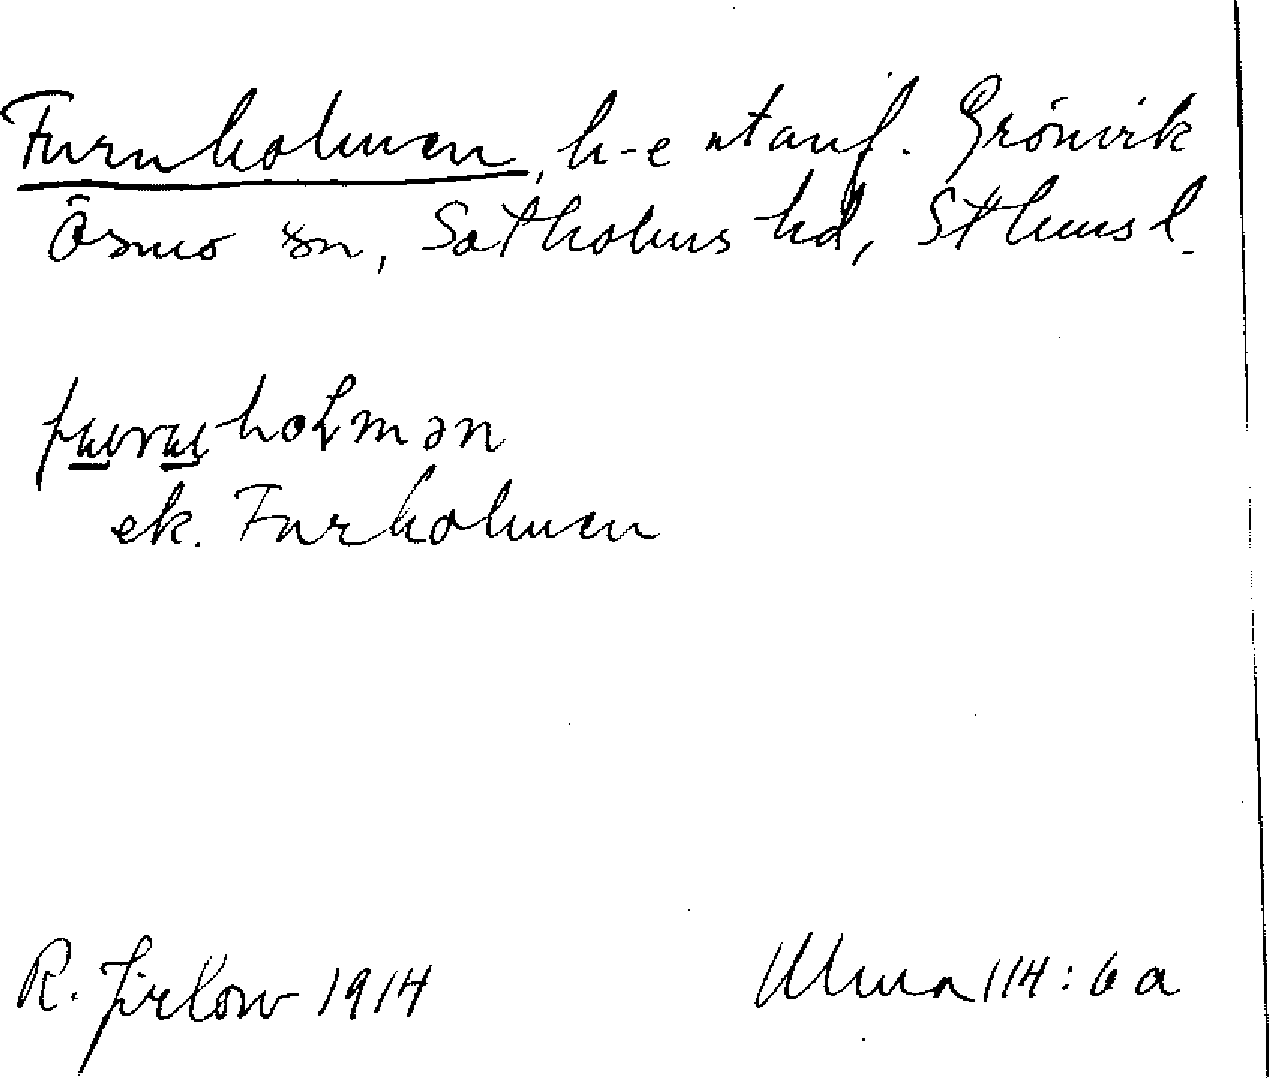 Furuholmen, h-e utanf. Grönvik
Ösmo sn, Sotholms hd, Sthms l.
ek. Furholmen
R. Jirlow 1914
Ulma 114:6a